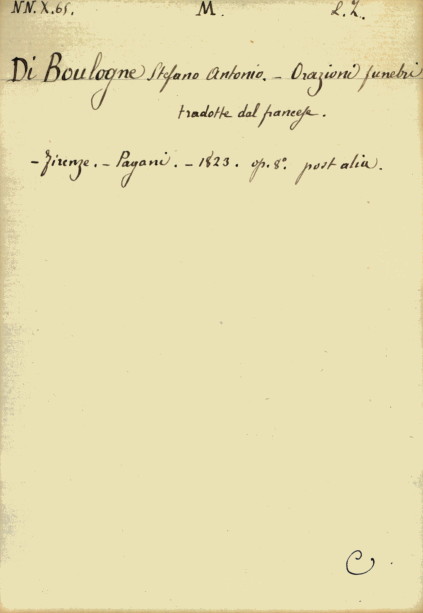 NN. X. 65. M. L. Z.
Di Boulogne Stefano Antonio. - Orazioni funebri
tradotte dal francese.
- Firenze. - Pagani. - 1823. op. 8°. post alia.
C